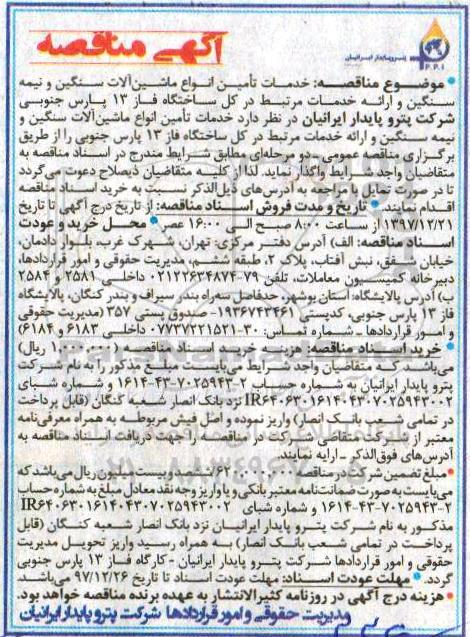 آگهی مناقصه
پترو پایدار ایرانیان
P.P.I
• موضوع مناقصه: خدمات تأمین انواع ماشین‌آلات سنگین و نیمه
سنگین و ارائه خدمات مرتبط در کل ساختگاه فاز ۱۳ پارس جنوبی
شرکت پترو پایدار ایرانیان در نظر دارد خدمات تأمین انواع ماشین‌آلات سنگین و
نیمه سنگین و ارائه خدمات مرتبط در کل ساختگاه فاز ۱۳ پارس جنوبی را از طریق
برگزاری مناقصه عمومی و دو مرحله‌ای مطابق شرایط مندرج در اسناد مناقصه به
متقاضیان واجد شرایط واگذار نماید. لذا از کلیه متقاضیان ذیصلاح دعوت می‌گردد
تا در صورت تمایل با مراجعه به آدرس‌های ذیل‌الذکر نسبت به خرید اسناد مناقصه
اقدام نمایند. • تاریخ و مدت فروش اسناد مناقصه: از تاریخ درج آگهی تا تاریخ
۱۳۹۷/۱۲/۲۱ از ساعت ۸:۰۰ صبح الی ۱۶:۰۰ عصر • محل خرید و عودت
اسناد مناقصه: الف) آدرس دفتر مرکزی: تهران، شهرک غرب، بلوار دادمان،
خیابان شفق، نبش آفتاب، پلاک ۲، طبقه ششم، مدیریت حقوقی و امور قراردادها،
دبیرخانه کمیسیون معاملات، تلفن ۷۹-۰۲۱۲۲۶۳۴۸۷۴ داخلی ۲۵۸۱ و ۲۵۸۴
ب) آدرس پالایشگاه: استان بوشهر، حدفاصل سه‌راه بندر سیراف و بندر کنگان، پالایشگاه
فاز ۱۳ پارس جنوبی، کدپستی ۱۹۳۶۷۴۳۴۶۱- صندوق پستی ۳۵۷ (مدیریت حقوقی
و امور قراردادها - شماره تماس: ۳۰-۰۷۷۳۷۲۲۱۵۲۱ داخلی ۶۱۸۳ و ۶۱۸۴)
• خرید اسناد مناقصه: هزینه خرید اسناد مناقصه ریال)
می‌باشد که متقاضیان واجد شرایط می‌بایست مبلغ مذکور را به نام شرکت
پترو پایدار ایرانیان به شماره حساب ۲-۷۰۲۵۹۴۳-۴۳-۱۶۱۴ و شماره شبای
IR۶۴۰۶۳۰۱۶۱۴۰۴۳۰۷۰۲۵۹۴۳۰۰۲ نزد بانک انصار شعبه کنگان (قابل پرداخت
در تمامی شعب بانک انصار) واریز نموده و اصل فیش مربوطه به همراه معرفی‌نامه
معتبر از شرکت متقاضی شرکت در مناقصه را جهت دریافت اسناد مناقصه به
آدرس‌های فوق‌الذکر - ارایه نمایند.
• مبلغ تضمین شرکت در مناقصه ششصد و بیست میلیون ریال می‌باشد که
می‌بایست به صورت ضمانت‌نامه معتبر بانکی و یا واریز وجه نقد معادل مبلغ به شماره حساب
۲-۷۰۲۵۹۴۳-۴۳-۱۶۱۴ و شماره شبای IR۶۴۰۶۳۰۱۶۱۴۰۴۳۰۷۰۲۵۹۴۳۰۰۲
مذکور به نام شرکت پترو پایدار ایرانیان نزد بانک انصار شعبه کنگان (قابل
پرداخت در تمامی شعب بانک انصار) به همراه رسید واریز تحویل مدیریت
حقوقی و امور قراردادها شرکت پترو پایدار ایرانیان - کارگاه فاز ۱۳ پارس جنوبی
گردد. • مهلت عودت اسناد: مهلت عودت اسناد تا تاریخ ۹۷/۱۲/۲۶ می‌باشد.
• هزینه درج آگهی در روزنامه کثیرالانتشار به عهده برنده مناقصه خواهد بود.
مدیریت حقوقی و امور قراردادها شرکت پترو پایدار ایرانیان